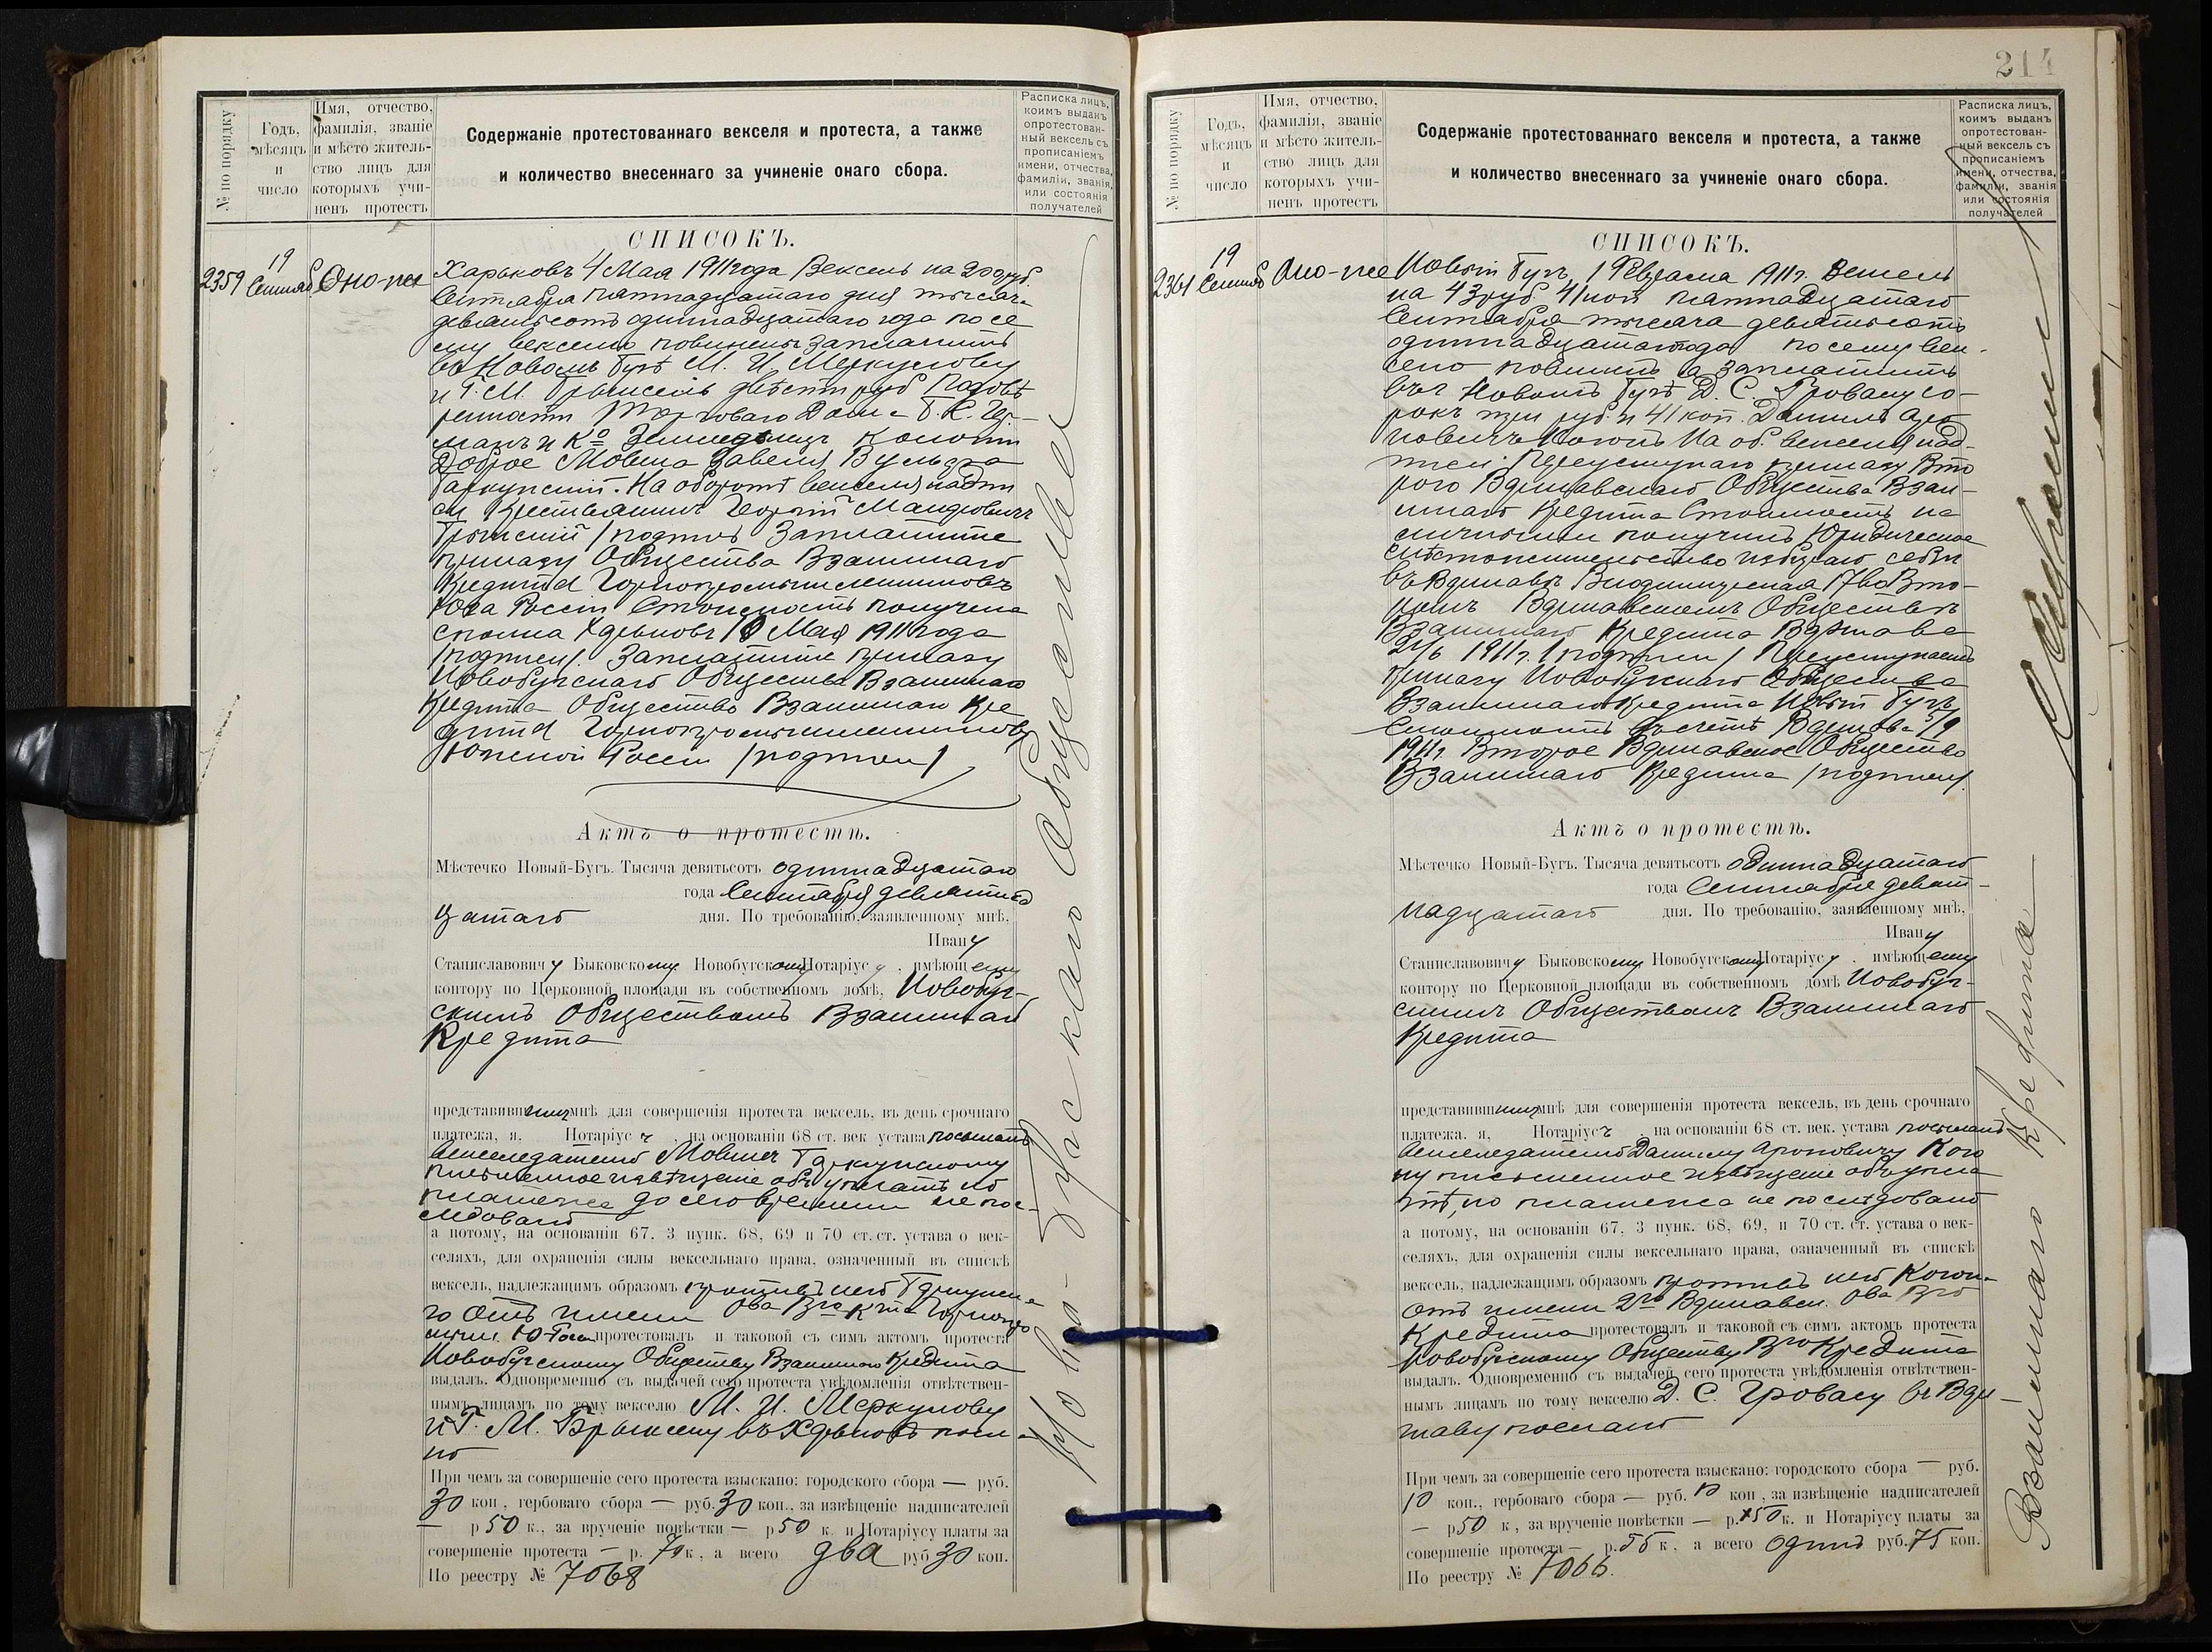 № по порядку
Годъ, мѣсяцъ и число
Имя, отчество, фамилія, званіе и мѣсто жительство лицъ для которыхъ учиненъ протестъ
Содержаніе протестованнаго векселя и протеста, а также
и количество внесеннаго за учиненіе онаго сбора.
Расписка лицъ, коимъ выданъ опротестованный вексель съ прописаніемъ имени, отчества, фамиліи, званія, или состоянія получателей
СПИСОКЪ.
2359
19
Сентяб
Оно-же
Харьковъ 4 Мая 1911 года Вексель на 200 руб.
Сентября пятнадцатаго дня тысяча
девятьсотъ одиннадцатаго года по се
му векселю повиненъ заплатить
въ Новомъ Бугѣ М. И. Меркулову
и Г. М. двѣсти руб По довѣ
ренности Торговаго Дома
и Ко колоніи
Доброе Мовша
На оборотѣ векселя надпи
си Крестьянинъ Георгій
/подпись Заплатите
приказу Общества Взаимнаго
Кредита Горнопромышленниковъ
Юга Россіи Стоимость получена
сполна Харьковъ 10 Мая 1911 года
/подписи/. Заплатите приказу
Новобугскаго Общества Взаимнаго
Кредита Общество Взаимнаго Кре
дита Горнопромышленниковъ
Южной Россіи /подписи/
Актъ о протестѣ.
Мѣстечко Новый-Бугъ. Тысяча девятьсотъ одиннадцатаго
года Сентября девятнад
цатаго дня. По требованію, заявленному мнѣ,
Ивану
Станиславовичу Быковскому Новобугскому Нотаріусу, имѣющему
контору по Церковной площади въ собственномъ домѣ, Новобуг-
скимъ Обществомъ Взаимнаго
Кредита
представившимъ мнѣ для совершенія протеста вексель, въ день срочнаго
платежа, я, Нотаріусъ, на основаніи 68 ст. век устава посылалъ
векселедателю Мовшѣ
письменное извѣщеніе объ уплатѣ но
платежа до сего времени не пос-
лѣдовало
а потому, на основаніи 67, 3 пунк. 68, 69 и 70 ст. ст. устава о век-
селяхъ, для охраненія силы вексельнаго права, означенный въ спискѣ
вексель, надлежащимъ образомъ противъ него
го отъ имени Ова Вго Кта Горнопро
мышл. Ю. Росс. протестовалъ и таковой съ симъ актомъ протеста
Новобугскому Обществу Взаимнаго Кредита
выдалъ. Одновременно съ выдачей сего протеста увѣдомленія отвѣтствен-
нымъ лицамъ по тому векселю М. И. Меркулову
и Г. М. въ Харьковъ посла
но
При чемъ за совершеніе сего протеста взыскано: городского сбора — руб.
30 коп, гербоваго сбора — руб. 30 коп., за извѣщеніе надписателей
— р 50 к., за врученіе повѣстки — р 50 к. и Нотаріусу платы за
совершеніе протеста — р. 70 к, а всего два руб 30 коп.
По реестру № 7068
Ново-Бугскаго Общества
214
№ по порядку
Годъ, мѣсяцъ и число
Имя, отчество, фамилія, званіе и мѣсто жительство лицъ для которыхъ учиненъ протестъ
Содержаніе протестованнаго векселя и протеста, а также
и количество внесеннаго за учиненіе онаго сбора.
Расписка лицъ, коимъ выданъ опротестованный вексель съ прописаніемъ имени, отчества, фамиліи, званія или состоянія получателей
СПИСОКЪ.
2361
19
Сентяб
Оно-же
Новый Бугъ, 1 Февраля 1911 г. Вексель
на 43 руб. 41 коп Пятнадцатаго
Сентября тысяча девятьсотъ
одиннадцатаго года по сему век-
селю повиненъ я заплатить
въ Новомъ Бугѣ Д. С. Гровасу со-
рокъ три руб. и 41 коп. Данилъ Аро
новичъ Коганъ На об. векселя над-
писи: Переуступаю приказу Вто
рого Варшавскаго Общества Взаи-
мнаго Кредита Стоимость на
личными получилъ Юридическое
мѣстожительство избираю себѣ
въ Варшавѣ 17 во Вто-
ромъ Варшавскомъ Обществѣ
Взаимнаго Кредита Варшава
1911 г. /подписи/ Переуступаемъ
приказу Новобугскаго Общества
Взаимнаго Кредита Новый Бугъ
Стоимость въ счетѣ Варшава 5/9
1911 г. Второе Варшавское Общество
Взаимнаго Кредита /подписи/.
Актъ о протестѣ.
Мѣстечко Новый-Бугъ. Тысяча девятьсотъ одиннадцатаго
года Сентября девят-
надцатаго дня. По требованію, заявленному мнѣ,
Ивану
Станиславовичу Быковскому Новобугскому Нотаріусу, имѣющему
контору по Церковной площади въ собственномъ домѣ Новобуг-
скимъ Обществомъ Взаимнаго
Кредита
представившимъ мнѣ для совершенія протеста вексель, въ день срочнаго
платежа. я, Нотаріусъ, на основаніи 68 ст. век. устава посылалъ
векселедателю Данилу Ароновичу Кога
ну письменное извѣщеніе объ упла
тѣ, но платежа не послѣдовало
а потому, на основаніи 67, 3 пунк. 68, 69, и 70 ст. ст. устава о век-
селяхъ, для охраненія силы вексельнаго права, означенный въ спискѣ
вексель, надлежащимъ образомъ противъ него Когана
отъ имени 2го Варшавск. Ова Вго
Кредита протестовалъ и таковой съ симъ актомъ протеста
Новобугскому Обществу Вго Кредита
выдалъ. Одновременно съ выдачей сего протеста увѣдомленія отвѣтствен-
нымъ лицамъ по тому векселю Д. С. Гровасу въ Вар-
шаву послано
При чемъ за совершеніе сего протеста взыскано: городского сбора — руб.
10 коп., гербоваго сбора — руб. 10 коп, за извѣщеніе надписателей
— р 50 к, за врученіе повѣстки — р. 50 к. и Нотаріусу платы за
совершеніе протеста — р. 55 к, а всего одинъ руб. 75 коп.
По реестру № 7066.
Взаимнаго Кредита